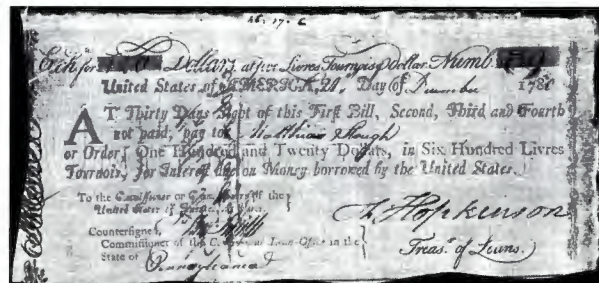 Exch for Dollars, at five Livres Tournois p Dollar. Numb.
United States of AMERICA, Day of December 178
AT Thirty Days Sight of this First Bill, Second, Third and Fourth
not paid, pay to Matthias Slough
or Order, One Hundred and Twenty Dollars, in Six Hundred Livres
Tournois, for Interest due on Money borrowed by the United States.
To the Commissioner or Commissioners of the
United States of America, at Paris.
Countersigned,
Commissioner of the Continental Loan-Office in the
State of Pennsylvania
F. Hopkinson
Treasr. of Loans.